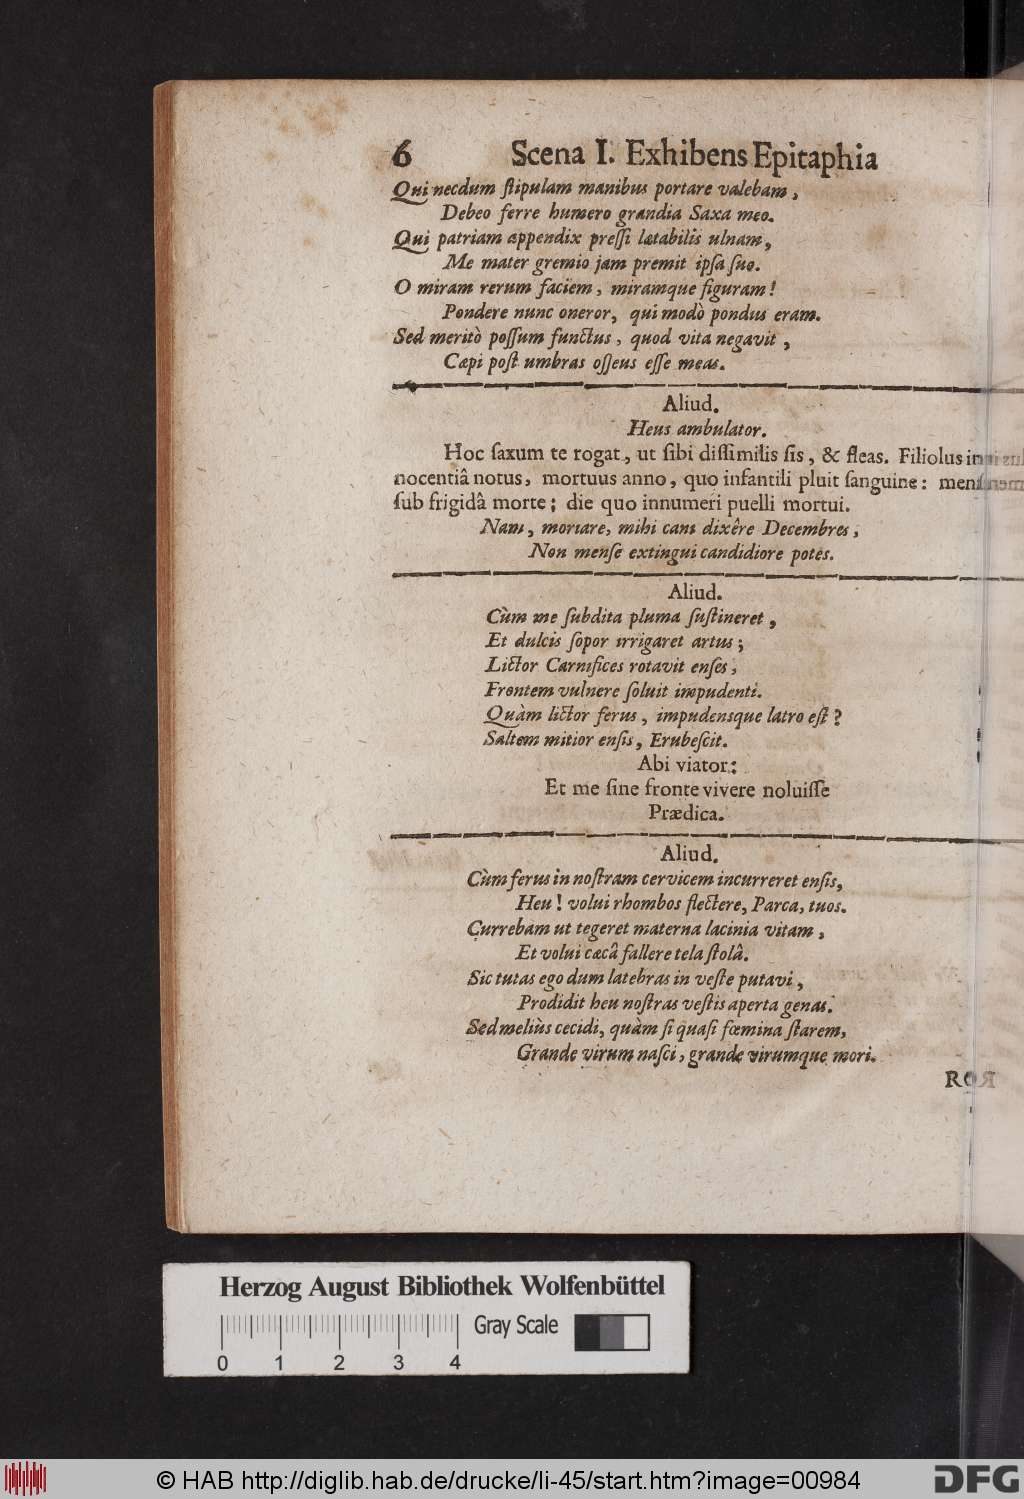 6 Scena I. Exhibens Epitaphia
Qui necdum ſtipulam manibus portare valebam,
Debeo ferre humero grandia Saxa meo.
Qui patriam appendix preſſi lætabilis ulnam,
Me mater gremio jam premit ipſa ſuo.
O miram rerum faciem, miramque figuram!
Pondere nunc oneror, qui modò pondus eram.
Sed meritò poſſum functus, quod vita negavit,
Cæpi poſt umbras oſſeus eſſe meas.
Aliud.
Heus ambulator.
Hoc ſaxum te rogat, ut ſibi diſſimilis ſis, & fleas. Filiolus in
nocentiâ notus, mortuus anno, quo infantili pluit ſanguine: menſ
ſub frigidâ morte; die quo innumeri puelli mortui.
Nam, moriare, mihi cani dixêre Decembres,
Non menſe extingui candidiore potes.
Aliud.
Cùm me ſubdita pluma ſuſtineret,
Et dulcis ſopor irrigaret artus;
Lictor Carnifices rotavit enſes,
Frontem vulnere ſoluit impudenti.
Quàm lictor ferus, impudensque latro eſt?
Saltem mitior enſis, Erubeſcit.
Abi viator:
Et me ſine fronte vivere noluiſſe
Prædica.
Aliud.
Cùm ferus in noſtram cervicem incurreret enſis,
Heu! volui rhombos flectere, Parca, tuos.
Currebam ut tegeret materna lacinia vitam,
Et volui cæcâ fallere tela ſtolâ.
Sic tutas ego dum latebras in veſte putavi,
Prodidit heu noſtras veſtis aperta genas.
Sed meliùs cecidi, quàm ſi quaſi fœmina ſtarem,
Grande virum naſci, grande virumque mori.
ROR
Herzog August Bibliothek Wolfenbüttel
Gray Scale
0 1 2 3 4
© HAB http://diglib.hab.de/drucke/li-45/start.htm?image=00984
DFG